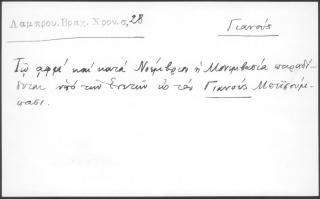 Λαμπρου. Βραχ. Χρον. σ, 28
Γιανούς
Τῷ αφμʹ καὶ κατὰ Νοέμβριον ἡ Μονεμβασία παραδί-
δεται ὑπὸ τῶν Ἐνετῶν εἰς τὸν Γιανούς Μπεϊσούμ-
πασι.